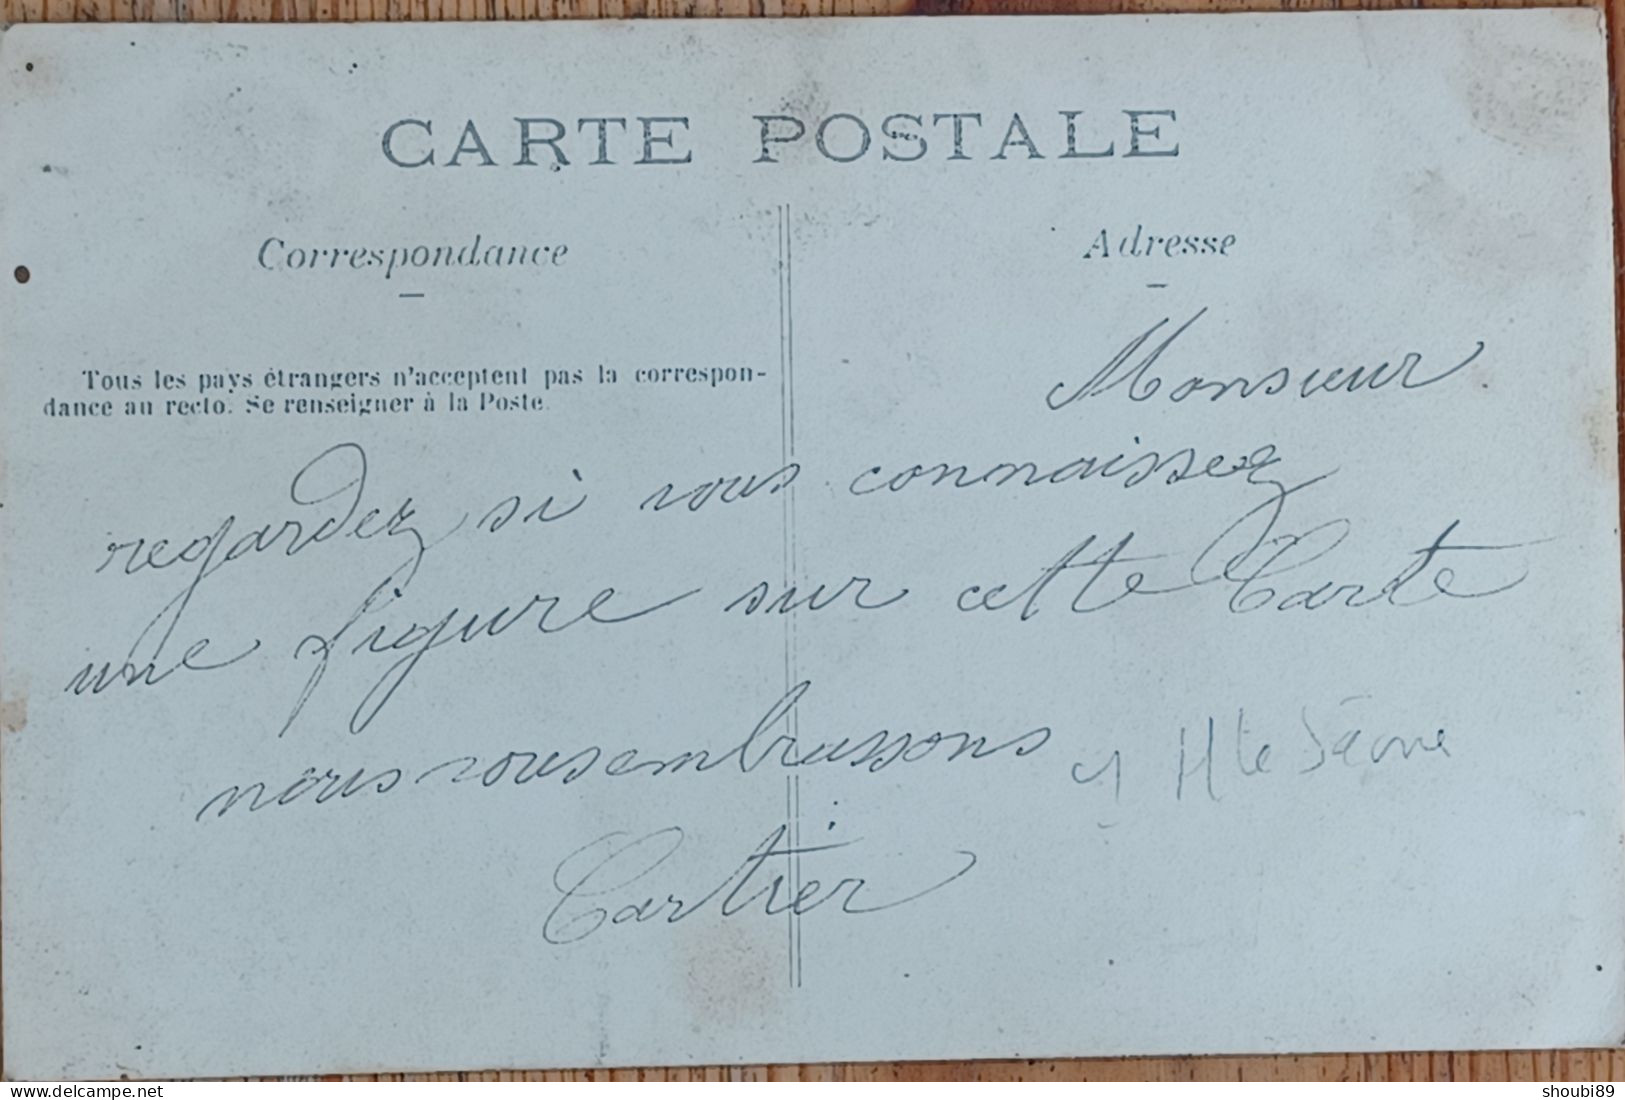 CARTE POSTALE
Correspondance
Adresse
Tous les pays étrangers n'acceptent pas la correspon-
dance au recto. Se renseigner à la Poste.
Monsieur
regardez si vous connaissez
une figure sur cette Carte
nous vous embrassons
Cartier
Hte Saone
shoubi89